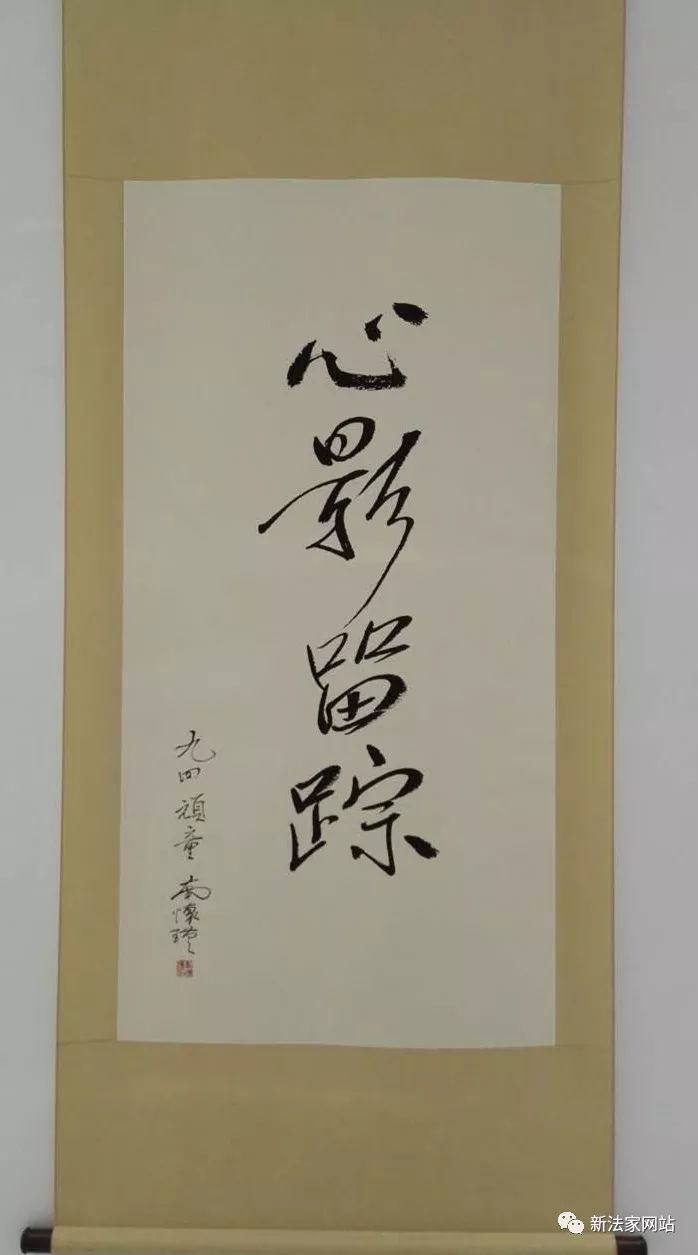 心影留踪
九四頑童 南懷瑾
新法家网站